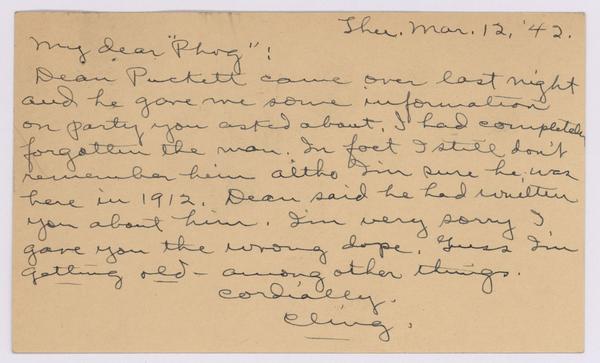 Thu. Mar. 12, '42.
My dear "Phog":
Dean Puckett came over last night
and he gave me some information
on party you asked about. I had completely
forgotten the man. In fact I still don't
remember him altho I'm sure he was
here in 1912. Dean said he had written
you about him. I'm very sorry I
gave you the wrong dope. Guss I'm
getting old - among other things.
Cordially.
Cling.